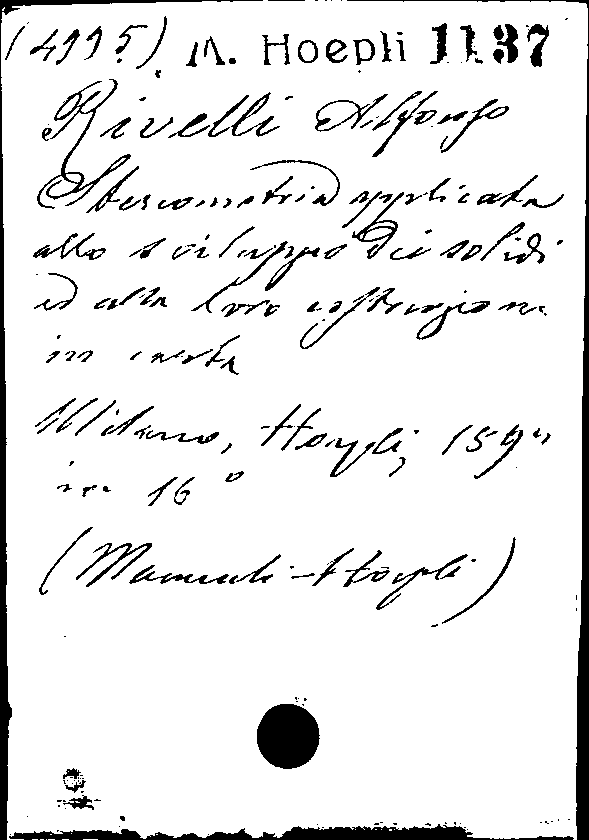 (4995) M. Hoepli 1137
Rivelli Alfonso
Stereometria applicata
allo sviluppo dei solidi
ed alla loro costruzione
in carta
Milano, Hoepli, 189
in 16°
(Manuali-Hoepli)